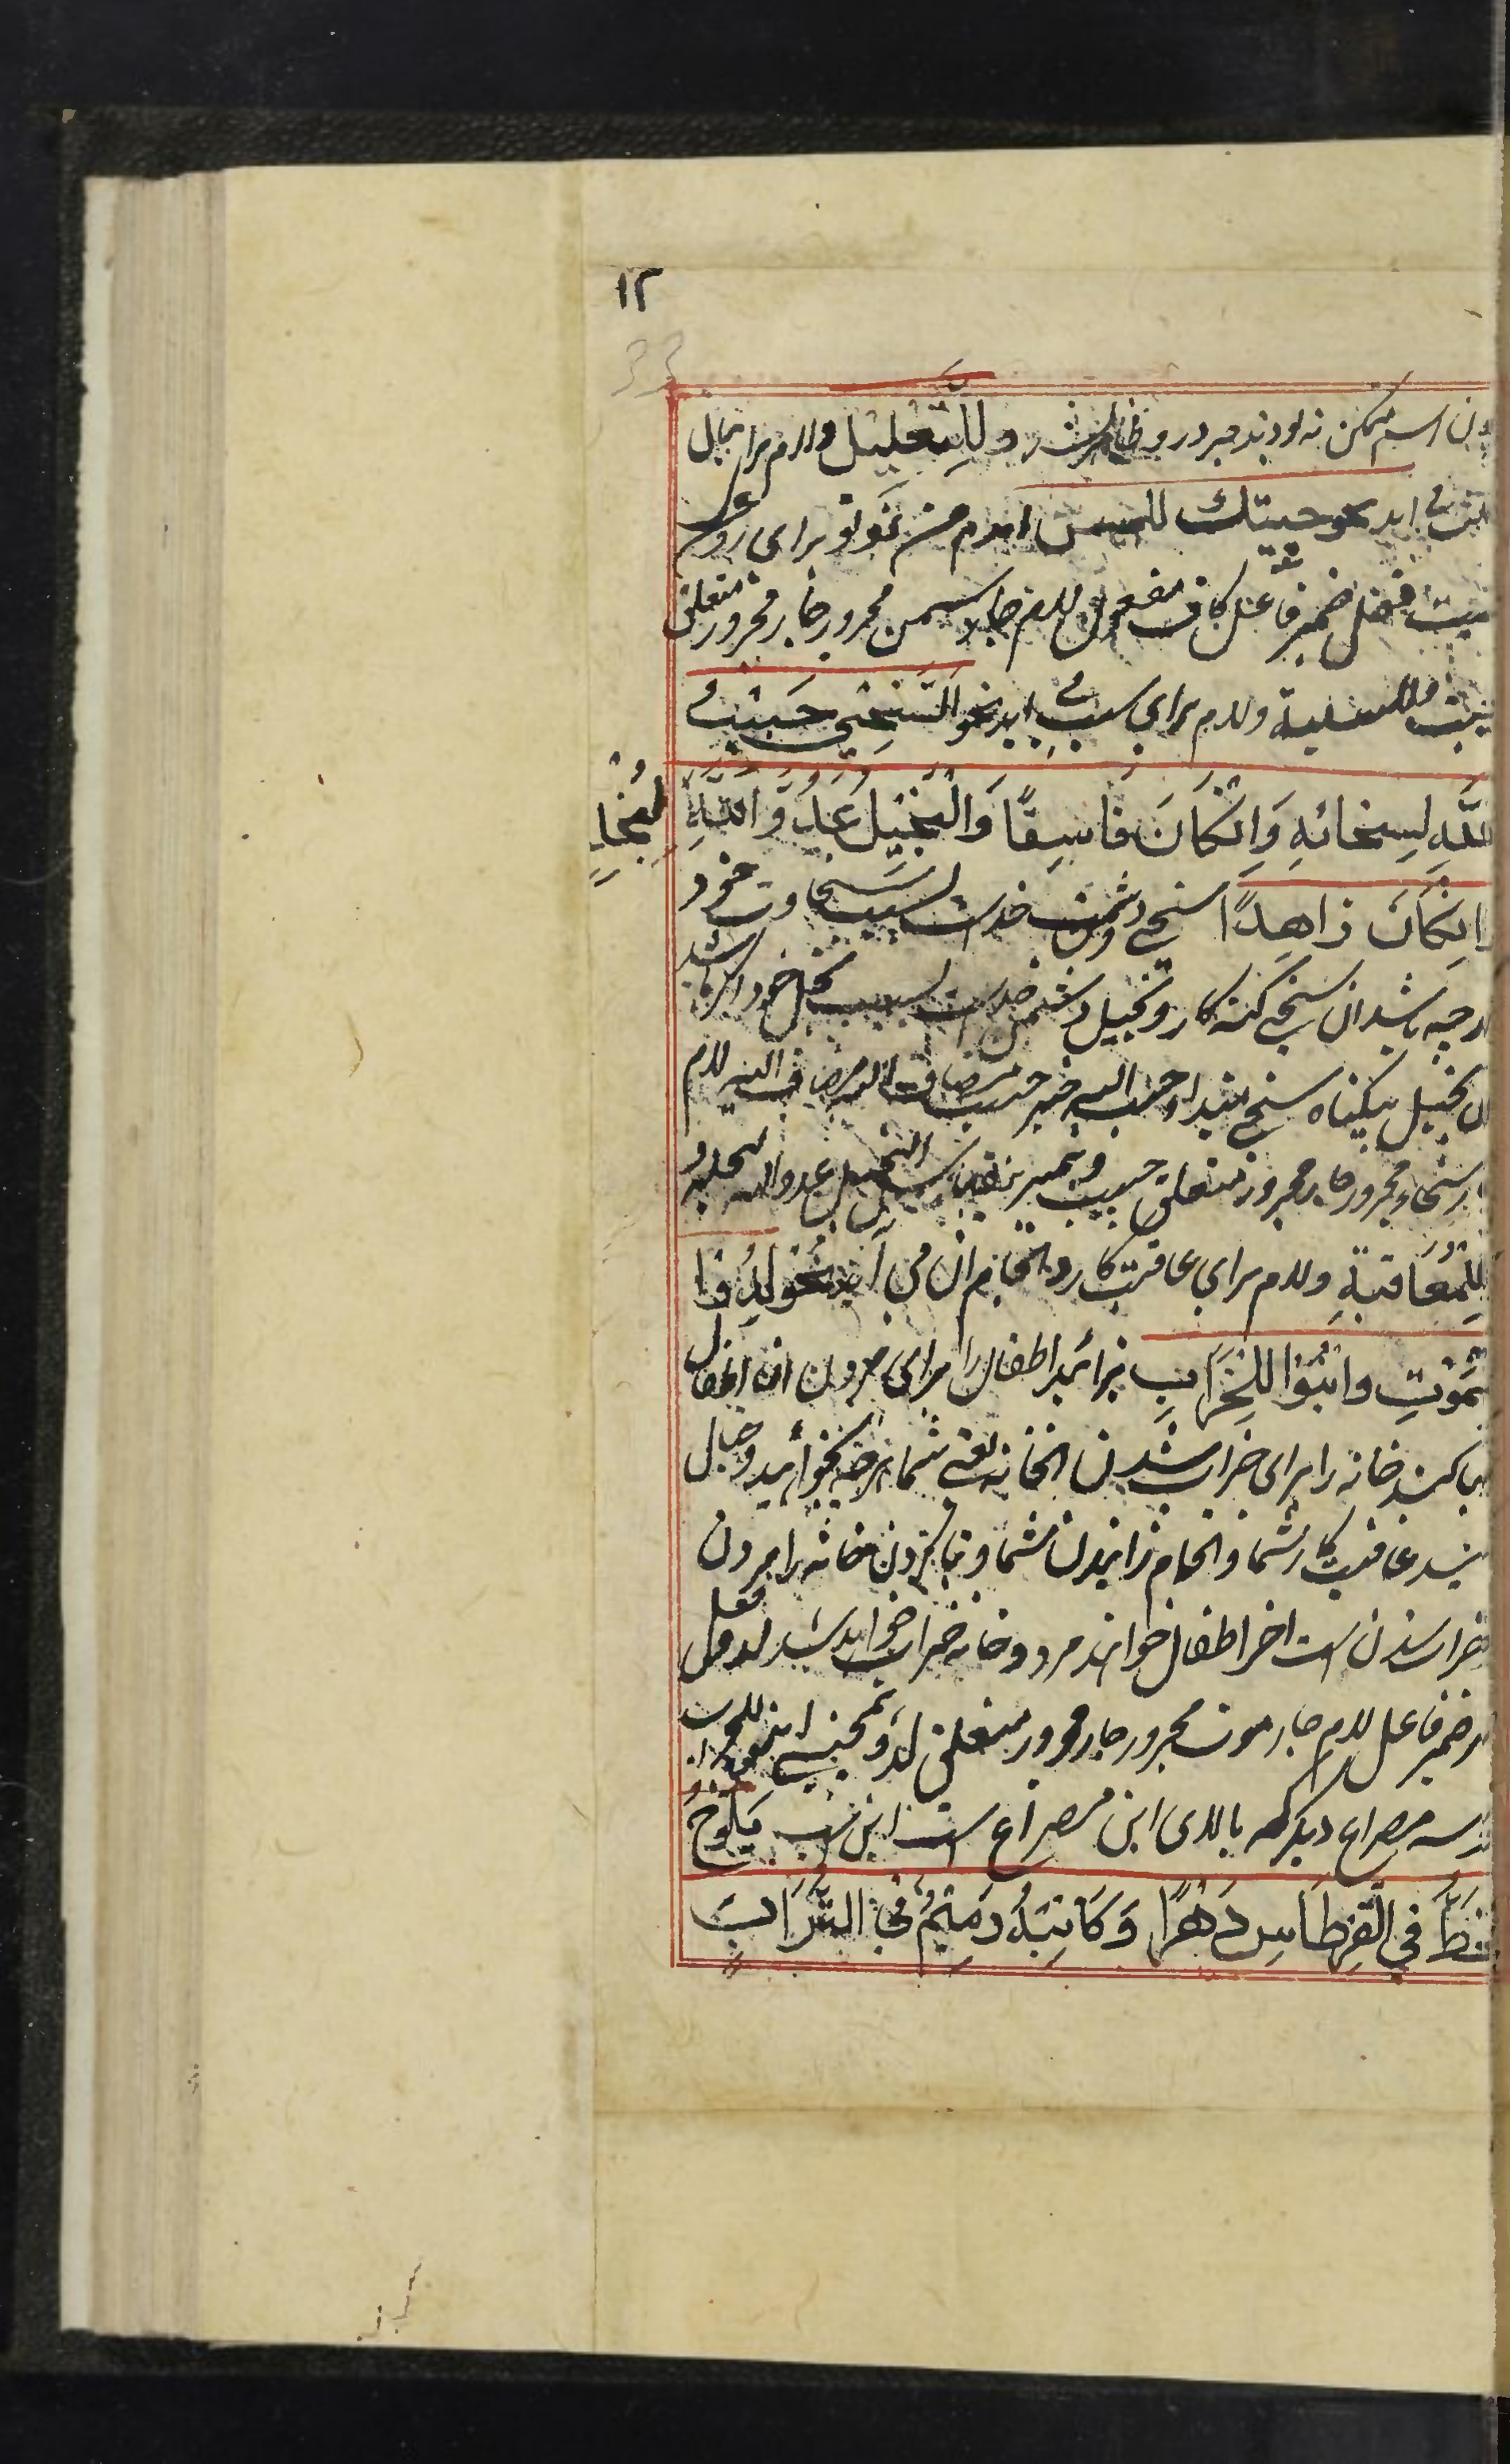 ۱۲
اسم متمکن نه بودند جر درو ظاهر نشد وَلِلتَّعْلِیْلِ ولام برای بیان
علت می اید نحو جیتك للسمن امدم من نزد تو برای روغن
فعل ضمیر فاعل کاف مفعول لام جار سمن مجرور جار مجرور متعلق
وللسببیة ولام برای سبب می اید نحو اَلسَّخِيُّ حَبِیْبُ
اللّٰهِ لِسِخَائِهِ وَاِنْکَانَ فَاسِقًا وَالْبَخِیْلُ عَدُوُّ اللّٰهِ لِبُخْلِهِ
وَاِنْکَانَ زَاهِدًا سخی خداست بسبب سخاوت خود
اگرچه باشد ان سخی گنه کار و بخیل دشمن خداست بسبب بخل خود اگرچه باشد
ان بخیل بیگناه سخی مبتدا حبیب الله خبر حبیب مضاف الله مضاف الیه لام
جار سخاء مجرور جار مجرور متعلق حبیب و همچنین البخیل عدو الله لبخله و
لِلْمُعَاقَبَةِ ولام برای عاقبت کار و انجام ان می آید نحو لِدُوْا
لِلْمَوْتِ وَابْنُوْا لِلْخَرَابِ بزائید اطفال را برای مردن ان اطفال
بنا کنید خانه را برای خراب شدن انخانه یعنی شما هرچه بخواهید و خیال
کنید عاقبت کار شما و انجام زائیدن شما و بنا کردن خانه را مردن
خراب شدن است اخر اطفال خواهند مرد و خانه خراب خواهد شد لدو فعل
ضمیر فاعل لام جار موت مجرور جار مجرور متعلق لدو همچنین ابنو للخراب
سه مصراع دیگر که بالای این مصراع است این است یَلُوْحُ
الْخَطُّ فِي الْقِرْطَاسِ دَهْرًا وَکَاتِبُهُ رَمِیْمٌ فِي التُّرَابِ